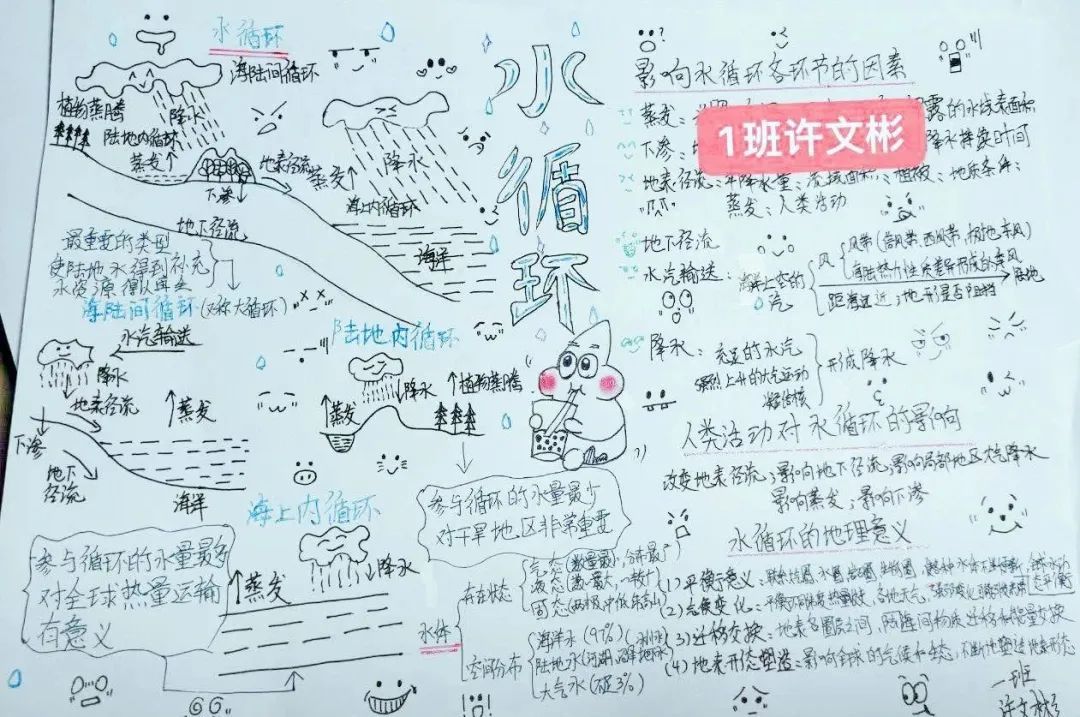 水循环
海陆间循环
植物蒸腾
降水
陆地内循环
蒸发
地表径流
下渗
地下径流
蒸发
降水
海上内循环
海洋
最重要的类型
使陆地水得到补充
水资源得以再生
海陆间循环(又称大循环)
水汽输送
降水
地表径流
蒸发
下渗
地下
径流
海洋
陆地内循环
降水
植物蒸腾
蒸发
参与循环的水量最少
对干旱地区非常重要
海上内循环
参与循环的水量最多
对全球热量运输
有意义
蒸发
降水
水循环
影响水循环各环节的因素
1班许文彬
蒸发:
露的水域表面积
下渗:
降水持续时间
地表径流:年降水量;流域面积;植被;地质条件;
蒸发;人类活动
地下径流
水汽输送:海洋上空的
汽
风
风带(信风带、西风带、极地东风)
海陆热力性质差异形成的季风
陆地
距海远近;地形是否阻挡
降水:充足的水汽
上升的大气运动
凝结核
形成降水
人类活动对水循环的影响
改变地表径流;影响地下径流;影响局部地区大气降水
影响蒸发;影响下渗
水循环的地理意义
(1)平衡意义:
(2)气候变化:
(3)迁移交换:地表各圈层之间,两海间物质迁移和能量交换
(4)地表形态塑造:影响全球的气候和生态,不断地塑造地表形态
水体
存在状态
气态(数量最少,分布最广)
液态(数量最大,
固态(
空间分布
海洋水(97%)
陆地水(河湖,
大气水(
3%)
一班
许文彬